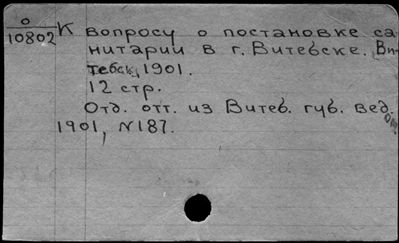 О
10802
К вопросу о постановке са
нитарии в г. Витебске. Ви-
тебск, 1901.
12 стр.
Отд. отт. из Витеб. губ. вед.
1901, N187.